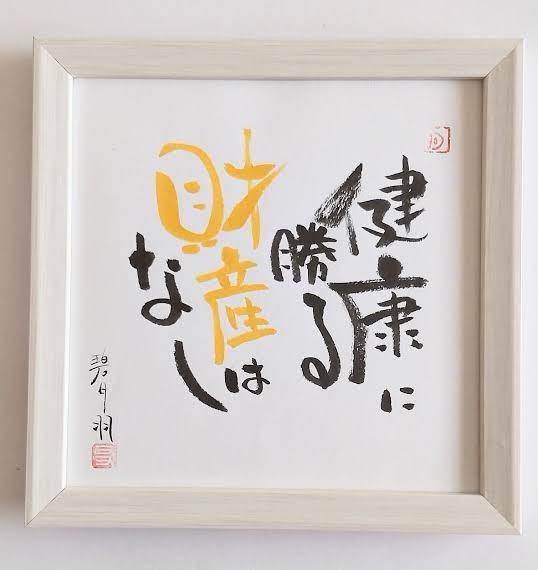 健康に
勝る
財産は
なし
碧月羽